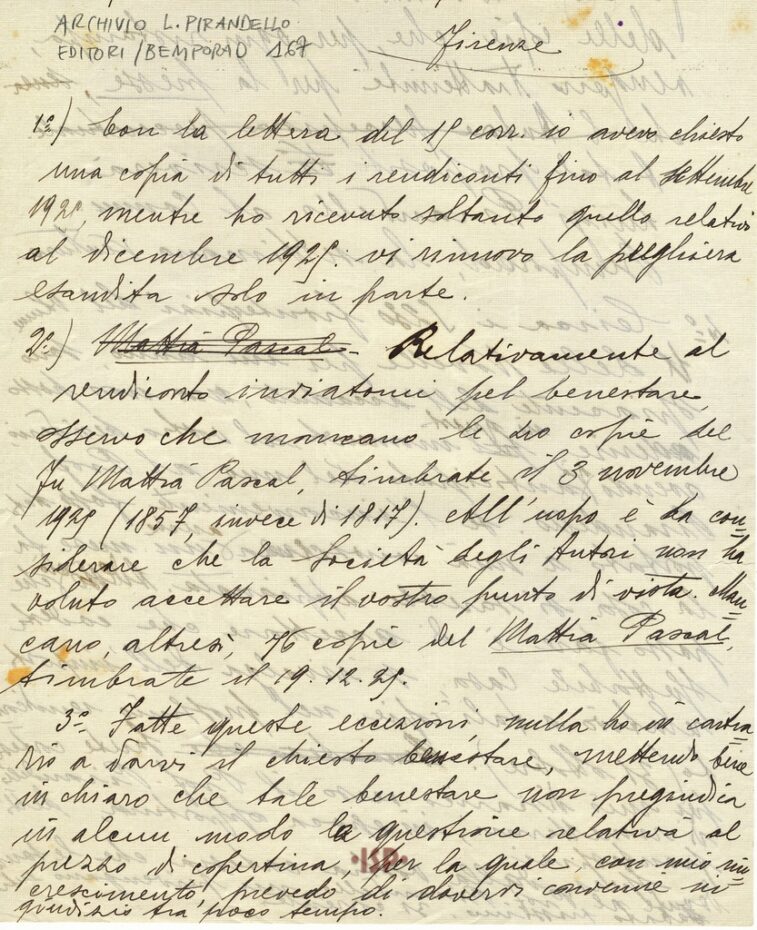 ARCHIVIO L. PIRANDELLO
EDITORI / BEMPORAD 167
Firenze
1º) Con la lettera del 15 corr. io avevo chiesto
una copia di tutti i rendiconti fino al settembre
1925, mentre ho ricevuto soltanto quello relativo
al dicembre 1925. vi rinnovo la preghiera
esaudita solo in parte.
2º) Mattia Pascal - Relativamente al
rendiconto inviatomi pel benestare,
osservo che mancano le 40 copie del
Fu Mattia Pascal, timbrate il 3 novembre
1925 (1857, invece di 1817). All'uopo è da con=
siderare che la Società degli Autori non ha
voluto accettare il vostro punto di vista. Man=
cano, altresì, 76 copie del Mattia Pascal,
timbrate il 19.12.25.
3º Fatte queste eccezioni, nulla ho in contra=
rio a darvi il chiesto benestare, mettendo bene
in chiaro che tale benestare non pregiudica
in alcun modo la questione relativa al
prezzo di copertina, per la quale, con mio rin=
crescimento, prevedo di dovervi convenire in
giudizio tra poco tempo.
ISP